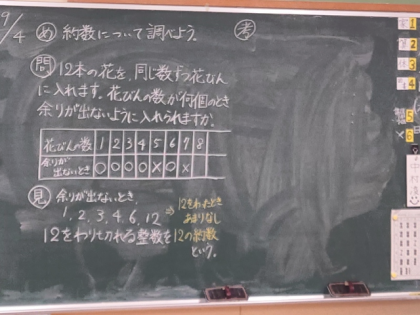 9/4
め 約数について調べよう。
考
問 12本の花を、同じ数ずつ花びん
に入れます。花びんの数が何個のとき
余りが出ないように入れられますか?
花びんの数 1 2 3 4 5 6 7 8
余りが出ないとき ○ ○ ○ ○ × ○ ×
見 余りが出ないとき、
1, 2, 3, 4, 6, 12 ⇒ 12をわったとき
あまりなし
12をわりきれる整数を12の約数
という。
1
2
3
4
5
6